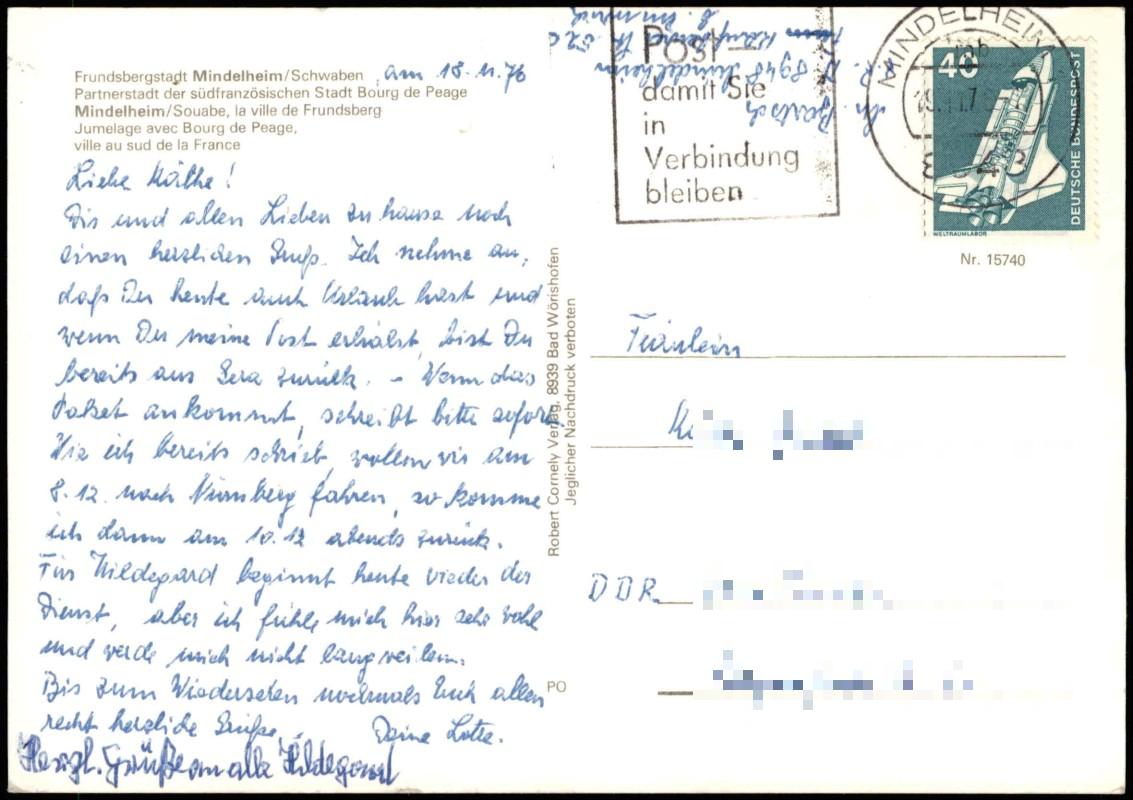 Frundsbergstadt Mindelheim/Schwaben am 18.11.76
Partnerstadt der südfranzösischen Stadt Bourg de Peage
Mindelheim/Souabe, la ville de Frundsberg
Jumelage avec Bourg de Peage,
ville au sud de la France
Liebe Käthe!
Dir und allen Lieben zu hause noch
einen herzlichen Gruß. Ich nehme an,
daß Du heute auch Urlaub hast und
wenn Du meine Post erhälst, bist Du
bereits aus Gera zurück. – Wenn das
Paket ankommt, schreibt bitte sofort.
Wie ich bereits schrieb, wollen wir am
8.12. nach Nürnberg fahren, so komme
ich dann am 10.12 abends zurück.
Für Hildegard beginnt heute wieder der
Dienst, aber ich fühle mich hier sehr wohl
und werde mich nicht langweilen.
Bis zum Wiedersehen nochmals Euch allen
recht herzliche Grüße. Deine Lotte.
Herzl. Grüße an alle Hildegard
Robert Cornely Verlag, 8939 Bad Wörishofen
Jeglicher Nachdruck verboten
PO
Post –
damit Sie
in
Verbindung
bleiben
MINDELHEIM
8948
40
DEUTSCHE BUNDESPOST
WELTRAUMLABOR
Nr. 15740
8948 Mindelheim
Bartsch
Fräulein
DDR